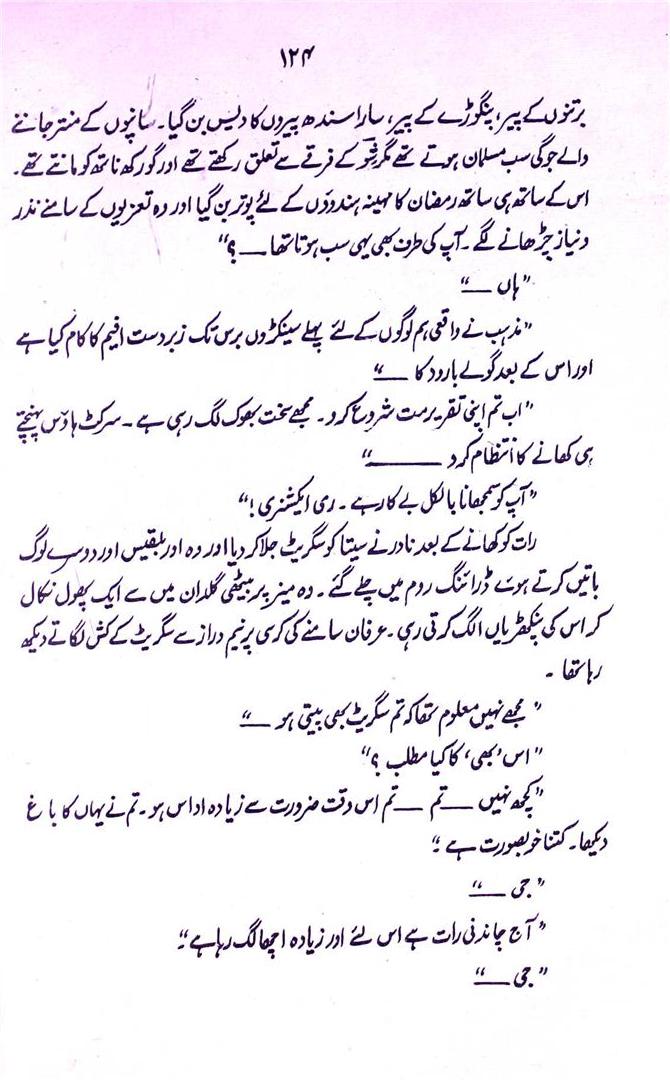 ۱۲۴
برتنوں کے پیر، پنگوڑے کے پیر، سارا سندھ پیروں کا دیس بن گیا۔ سانپوں کے منتر جاننے
والے جوگی سب مسلمان ہوتے تھے مگر شِو کے فرقے سے تعلق رکھتے تھے اور گورکھ ناتھ کو مانتے تھے۔
اس کے ساتھ ہی ساتھ رمضان کا مہینہ ہندوؤں کے لئے پوتر بن گیا اور وہ تعزیوں کے سامنے نذر
و نیاز چڑھانے لگے۔ آپ کی طرف بھی یہی سب ہوتا تھا ــــ؟"
"ہاں ــــ"
"مذہب نے واقعی ہم لوگوں کے لئے پہلے سینکڑوں برس تک زبردست افیم کا کام کیا ہے
اور اس کے بعد گولے بارود کا ــــ"
"اب تم اپنی تقریر مت شروع کرو۔ مجھے سخت بھوک لگ رہی ہے۔ سرکٹ ہاؤس پہنچتے
ہی کھانے کا انتظام کرو ــــــــ"
"آپ کو سمجھانا بالکل بے کار ہے۔ ری ایکشنری!"
رات کو کھانے کے بعد نادر نے سیتا کو سگریٹ جلا کر دیا اور وہ اور بلقیس اور دوسرے لوگ
باتیں کرتے ہوئے ڈرائنگ روم میں چلے گئے۔ وہ میز پر بیٹھی گلدان میں سے ایک پھول نکال
کر اس کی پنکھڑیاں الگ کرتی رہی۔ عرفان سامنے کی کرسی پر نیم دراز سے سگریٹ کے کش لگاتے دیکھ
رہا تھا ۔
"مجھے نہیں معلوم تھا کہ تم سگریٹ بھی پیتی ہو ــــ"
"اس 'بھی' کا کیا مطلب؟"
"کچھ نہیں ــــ تم ــــ تم اس وقت ضرورت سے زیادہ اداس ہو۔ تم نے یہاں کا باغ
دیکھا۔ کتنا خوبصورت ہے ۔"
"جی ــــ"
"آج چاندنی رات ہے اس لئے اور زیادہ اچھا لگ رہا ہے۔"
"جی ــــ"